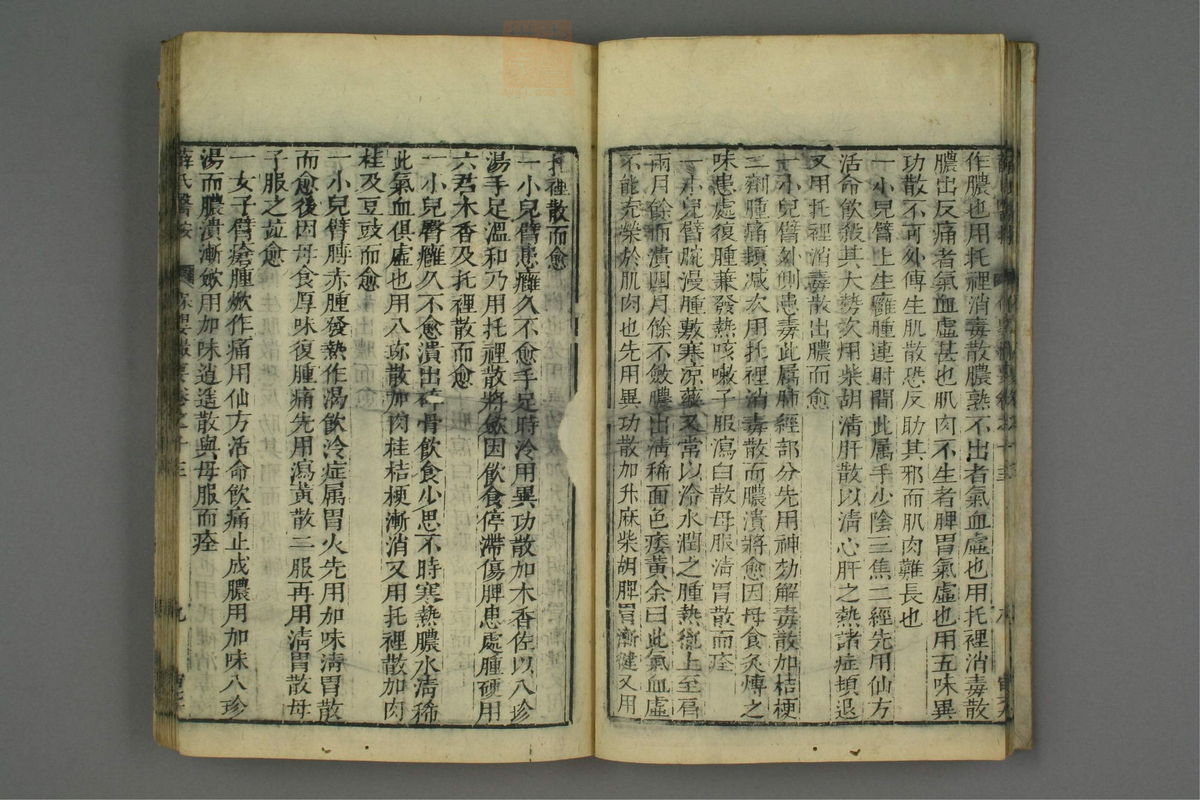 作膿也用托裡消毒散膿熟不出者氣血虛也用托裡消毒散
膿出反痛者氣血虛甚也肌肉不生者脾胃氣虛也用五味異
功散不可外傳生肌散恐反助其邪而肌肉難長也
一小兒臂上生癰腫連肘間此属手少陰三焦二經先用仙方
活命飲殺其大勢次用柴胡清肝散以清心肝之熱諸症頓退
又用托裡消毒散出膿而愈
一小兒臂外側患毒此属肺經部分先用神効解毒散加桔梗
二劑腫痛頓减次用托裡消毒散而膿潰將愈因母食炙煿之
味患處復腫兼發熱咳嗽子服瀉白散母服清胃散而痊
一小兒臂腕漫腫敷寒凉藥又常以冷水潤之腫熱衝上至肩
兩月餘而潰四月餘不斂膿出清稀面色痿黃余曰此氣血虛
不能充榮於肌肉也先用異功散加升麻柴胡脾胃漸健又用
托裡散而愈
一小兒臂患癰久不愈手足時冷用異功散加木香佐以八珍
湯手足溫和乃用托裡散將愈因飲食停滯傷脾患處腫硬用
六君木香及托裡散而愈
一小兒臀癰久不愈潰出碎骨飲食少思不時寒熱膿水清稀
此氣血俱虛也用八珎散加肉桂桔梗漸消又用托裡散加肉
桂及豆豉而愈
一小兒臂膊赤腫發熱作渴飲冷症属胃火先用加味清胃散
而愈後因母食厚味復腫痛先用瀉黃散二服再用清胃散母
子服之並愈
一女子臂瘡腫焮作痛用仙方活命飲痛止成膿用加味八珍
湯而膿潰漸斂用加味逍遥散與母服而痊
薛氏醫按 保嬰撮要卷之十三 九